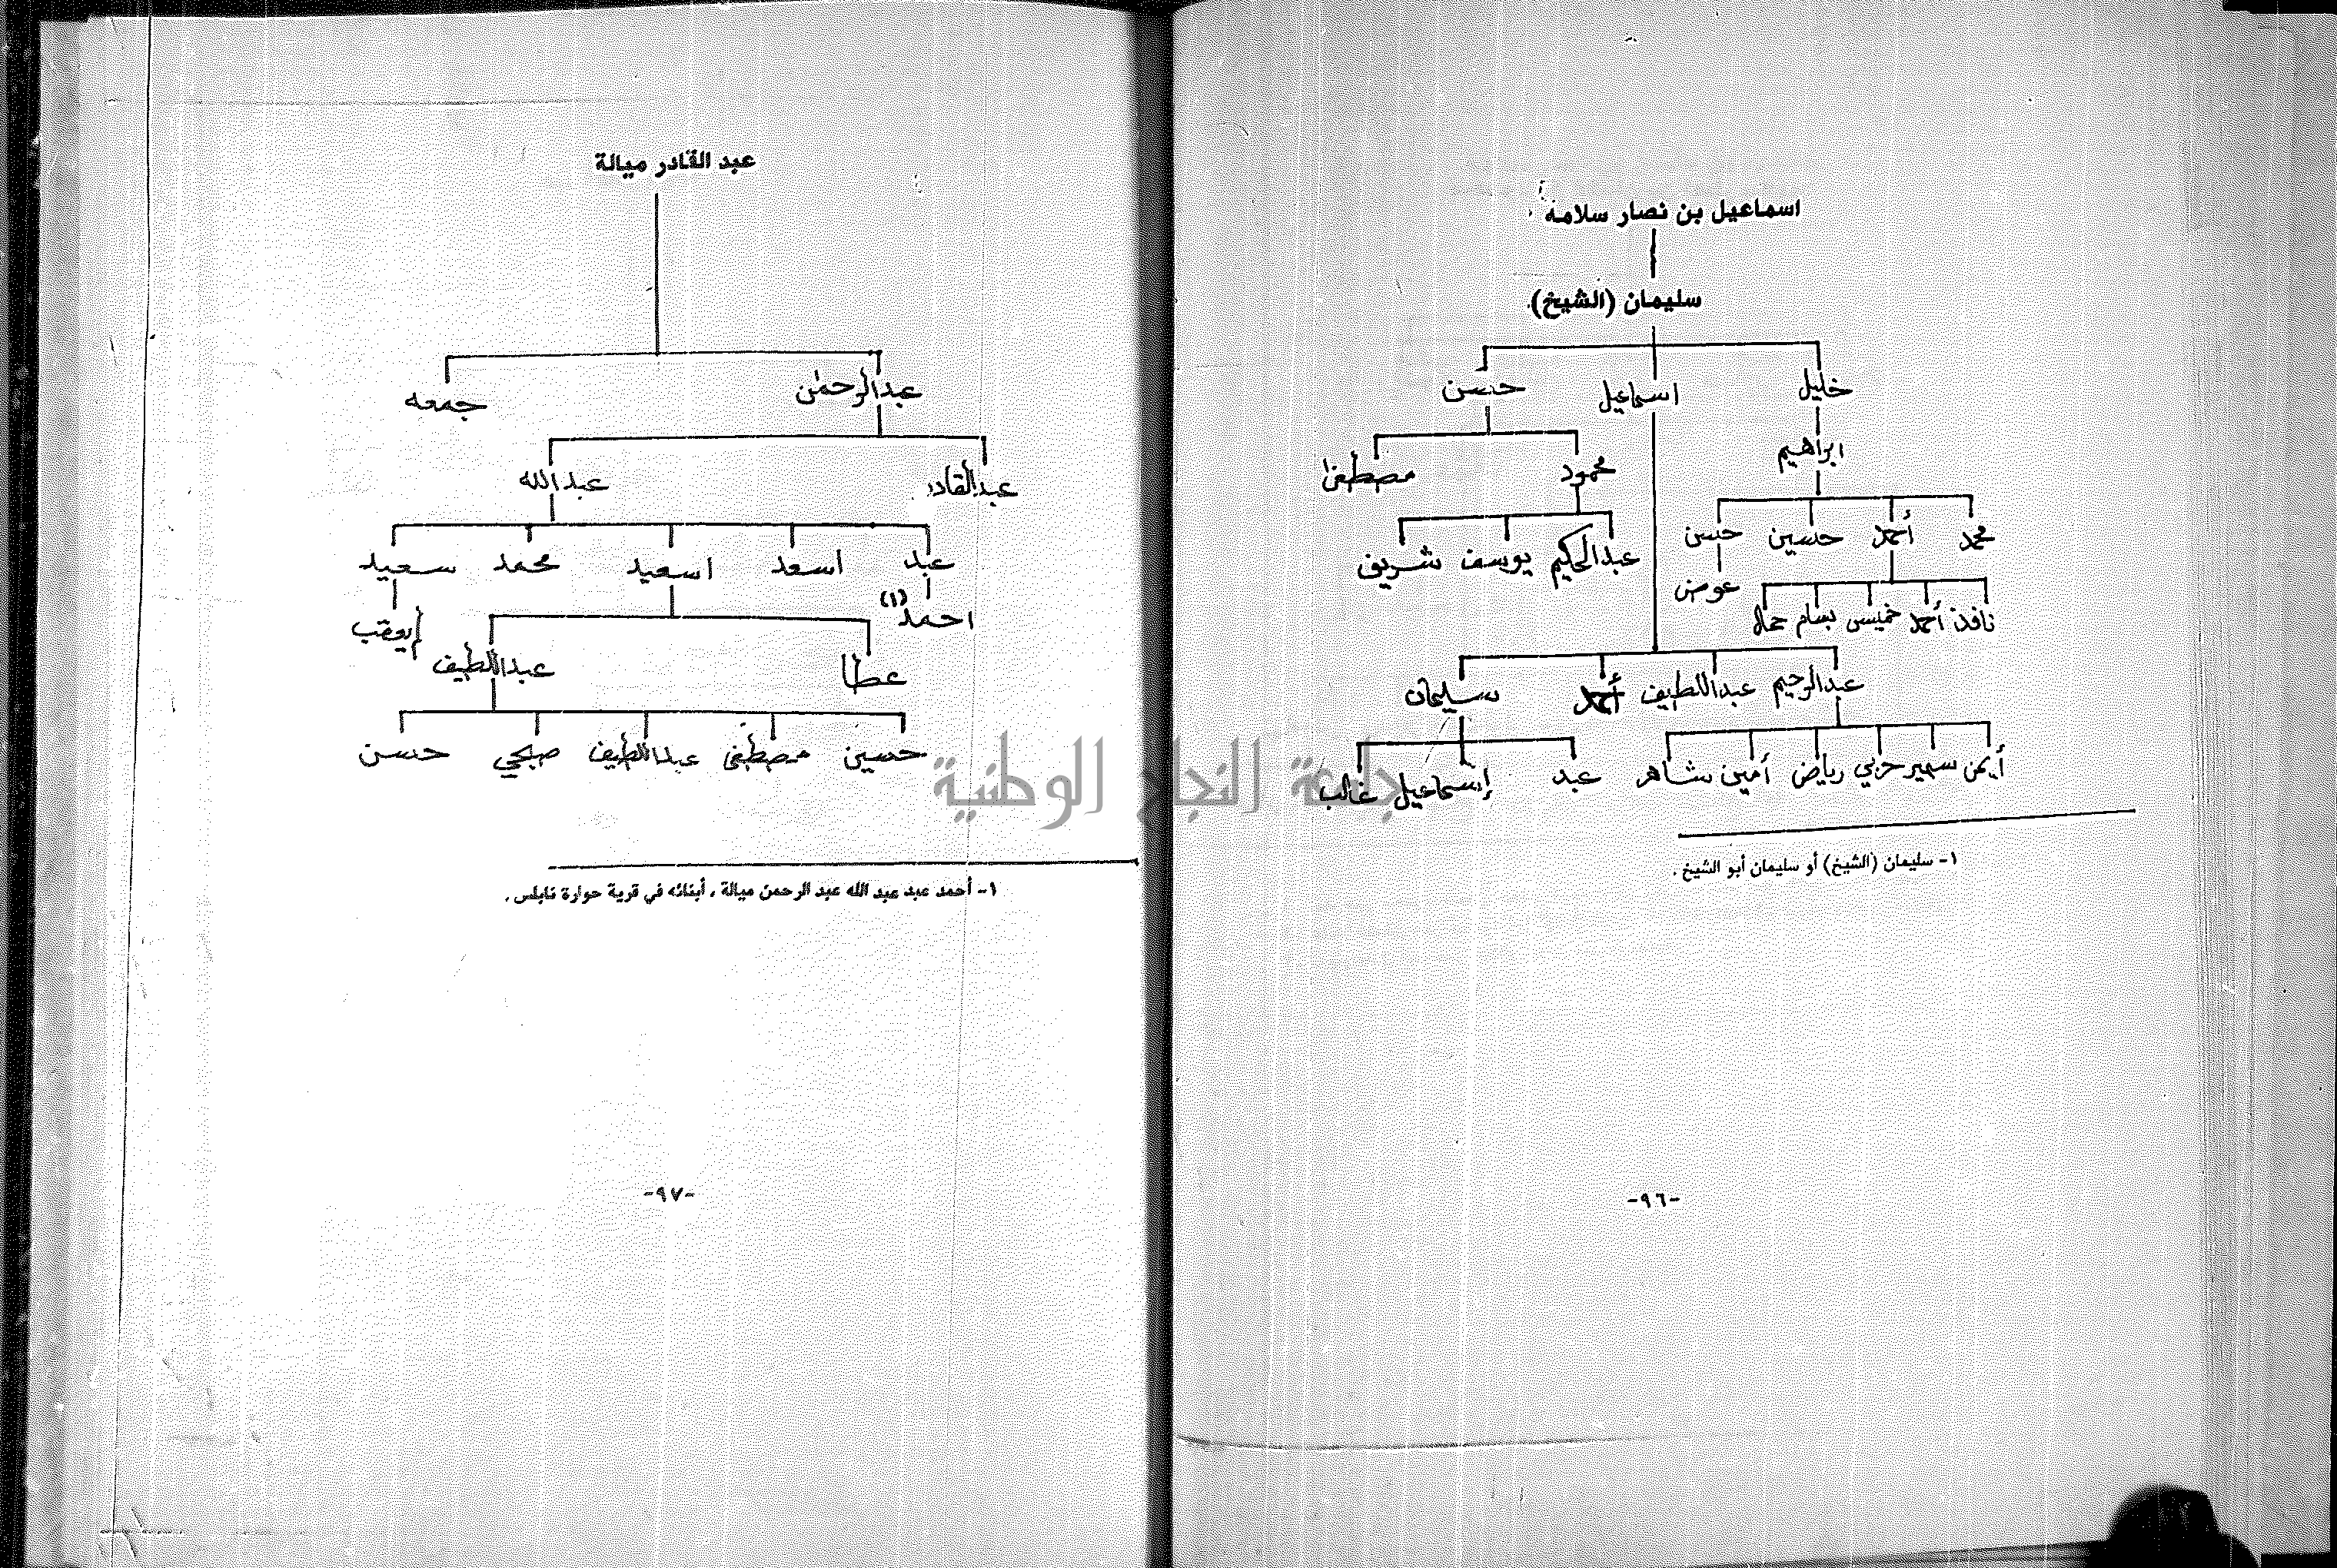 اسماعيل بن نصار سلامه
سليمان (الشيخ)
خليل اسماعيل حسن
ابراهيم
محمود مصطفى
محمد أحمد حسين حسن
عبدالحكيم يوسف شريف
عوض
نافذ أحمد خميس بسام جمال
عبدالرحيم عبداللطيف أحمد سليمان
أيمن سمير حربي رياض أمين شاهر
عبد إسماعيل غالب
١- سليمان (الشيخ) أو سليمان أبو الشيخ .
-٩٦-
عبد القادر ميالة
عبدالرحمن جمعه
عبدالقادر عبدالله
عبد اسعد اسعيد محمد سعيد
احمد (١)
عطا عبداللطيف
حسين مصطفى عبداللطيف صبحي حسن
١- أحمد عبد عبد الله عبد الرحمن ميالة ، أبنائه في قرية حوارة نابلس .
-٩٧-
جامعة النجاح الوطنية